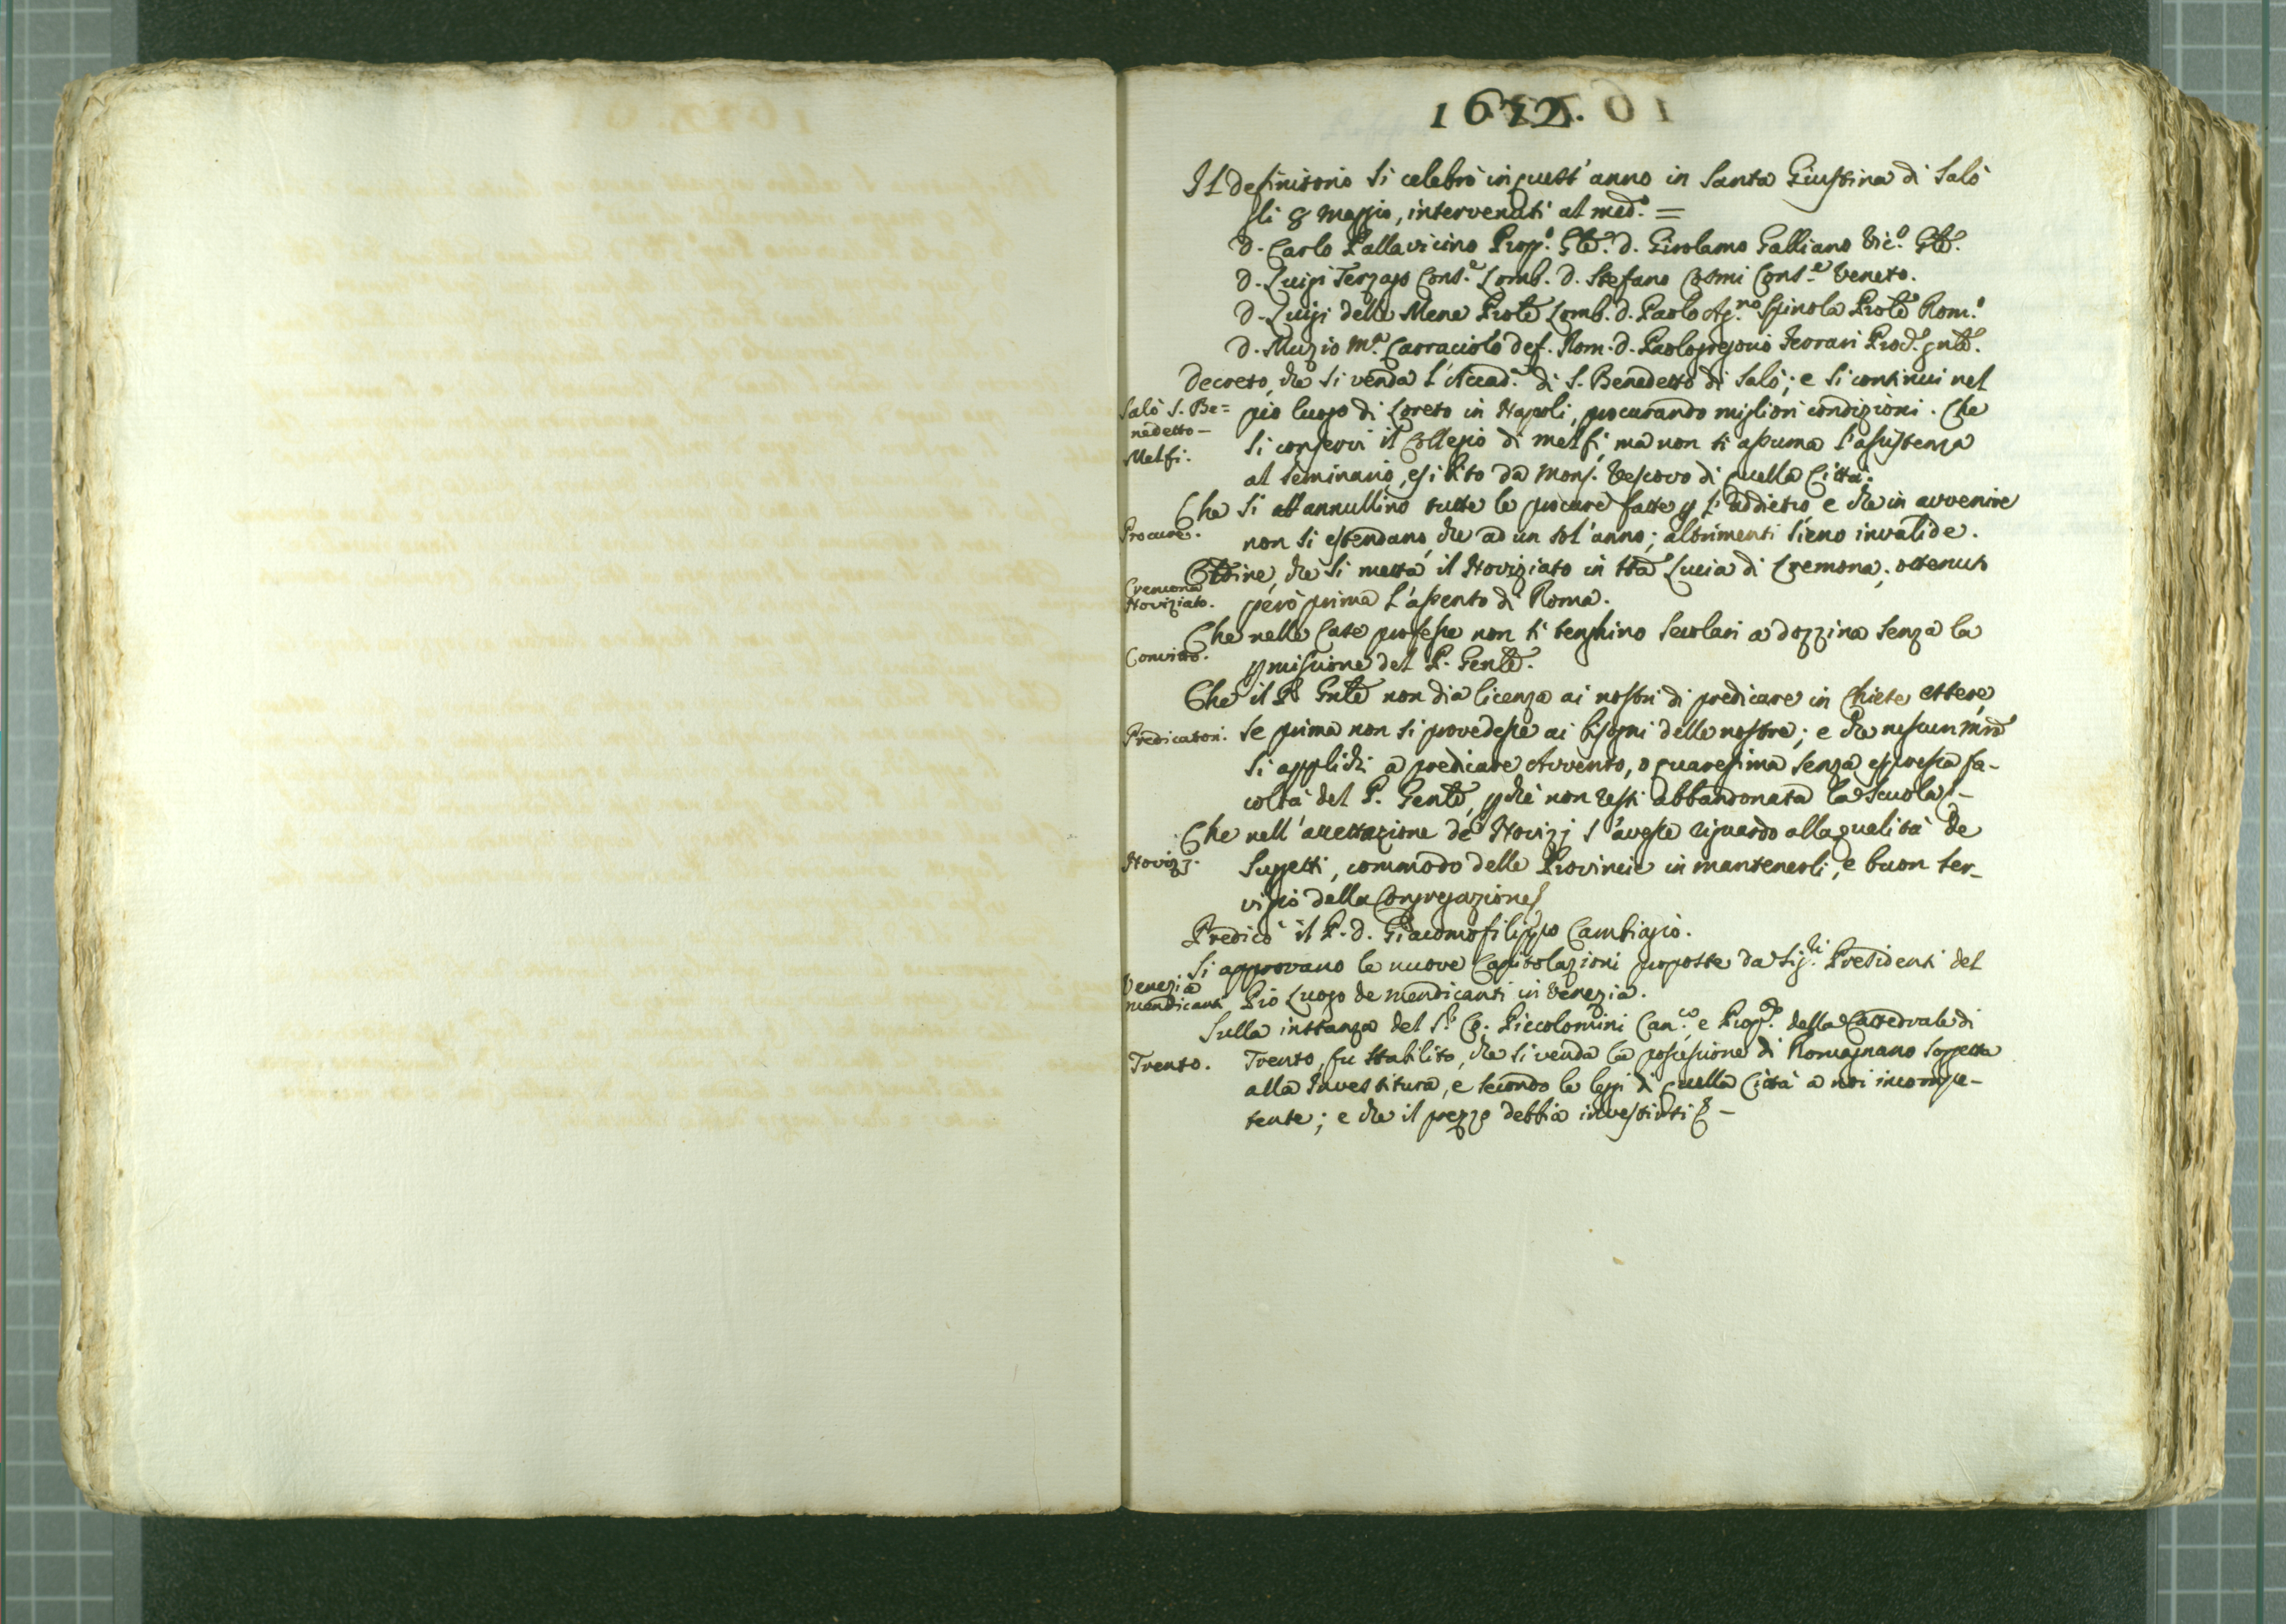 1672.
Il definitorio si celebrò in quest'anno in Santa Giustina di Salò
li 8 maggio, intervenuti al med.º =
D. Carlo Pallavicino Prop.º Gñle. D. Girolamo Galliano Vic.º Gñle.
D. Luigi Terzago Cons.e Lomb. D. Stefano Cosmi Cons.e Veneto.
D. Luigi delle Mene Prõle Lomb. D. Paolo Ag.no Spinola Prõle Rom.º
D. Muzio M.a Carraciolo def. Rom. D. Paologregorio Ferrari Prod. gñle.
Decreto, che si venda l'Accad.a di S. Benedetto di Salò; e si continui nel
Salò S. Be=
nedetto –
Melfi.
pio luogo di Loreto in Napoli, procurando migliori condizioni. Che
si conservi il Collegio di Melfi, ma non si assuma l'assistenza
al seminario, esibito da Mons. Vescovo di quella Città.
Che si annullino tutte le procure fatte p l'addietro e che in avvenire
Procure.
non si estendano, che ad un sol'anno; altrimenti sieno invalide.
Cremona
Noviziato.
Ordine, che si metta il Noviziato in Sta Lucia di Cremona; ottenuto
però prima l'assento di Roma.
Che nelle Case professe non si tenghino secolari a dozzina senza la
Convitto.
pmissione del P. Genle.
Che il P. Gnle non dia licenza ai nostri di predicare in Chiese estere,
Predicatori.
se prima non si provedesse ai bisogni delle nostre; e che nessun mrõ
si applichi a predicare Avvento, o quaresima senza espressa fa-
coltà del P. Genle, pchè non resti abbandonata la scuola. –
Che nell'accettazione de Novizj s'avesse riguardo alla qualità de
Novizj.
Suggetti, commodo delle Provincie in mantenerli, e buon ser-
vigio della Congregazione
Predicò il P. D. Giacomofilippo Cambiagio.
Si approvano le nuove Capitolazioni proposte da Sig.ri Presidenti del
Venezia
mendicanti
Pio Luogo de mendicanti in Venezia.
Sulla instanza del S.r Co. Piccolomini Can.co e Prop.to della Cattedrale di
Trento.
Trento, fu stabilito, che si venda la possessione di Romagnano soggetta
alla Investitura, e secondo le leggi di quella Città a noi incompe-
tente; e che il prezzo debbia investirsi –